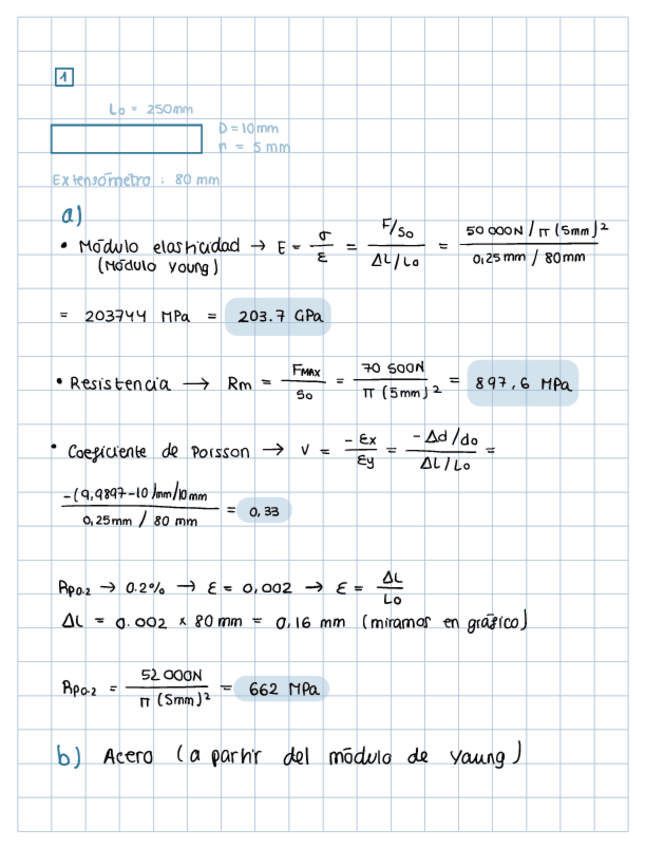 1
Lo = 250mm
D = 10mm
r = 5 mm
Extensómetro : 80 mm
a)
• Módulo elasticidad → E = σ/ε = (F/So)/(ΔL/Lo) = (50 000N / π (5mm)²)/(0,25 mm / 80mm)
(Módulo young)
= 203744 MPa = 203.7 GPa
• Resistencia → Rm = FMAX/So = 70 500N/π (5mm)² = 897,6 MPa
• Coeficiente de Poisson → V = -εx/εy = (-Δd/do)/(ΔL/Lo) =
(-(9,9897-10)mm/10mm)/(0,25mm / 80 mm) = 0,33
Rp0.2 → 0.2% → ε = 0,002 → ε = ΔL/Lo
ΔL = 0.002 x 80 mm = 0,16 mm (miramos en gráfico)
Rp0.2 = 52 000N/π (5mm)² = 662 MPa
b) Acero (a partir del módulo de young)